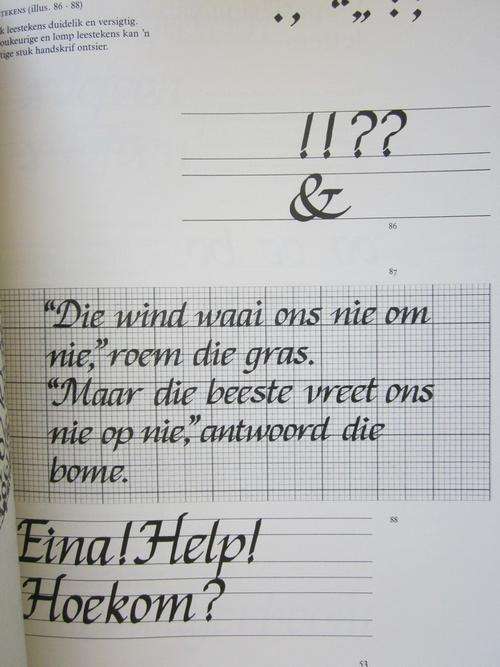 TEKENS (illus. 86 - 88)
k leestekens duidelik en versigtig.
oukeurige en lomp leestekens kan 'n
tige stuk handskrif ontsier.
. , “ ” : ;
! ! ? ?
&
86
87
“Die wind waai ons nie om
nie,” roem die gras.
“Maar die beeste vreet ons
nie op nie,” antwoord die
bome.
88
Eina! Help!
Hoekom?
53